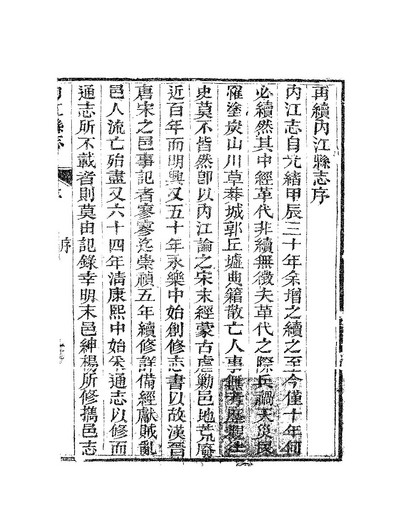 再續內江縣志序
內江志自光緒甲辰三十年余增之續之至今僅十年何
必續然其中經革代非續無徵夫革代之際兵禍天災民
罹塗炭山川草莽城郭丘墟典籍散亡人事無考歷觀往
史莫不皆然卽以內江論之宋末經蒙古虐勦邑地荒廢
近百年而明興又五十年永樂中始創修志書以故漢晉
唐宋之邑事記者寥寥迄崇禎五年續修詳備經獻賊亂
邑人流亡殆盡又六十四年清康熙中始采通志以修而
通志所不載者則莫由記錄幸明末邑紳楊所修舊邑志
內江縣志
序
序